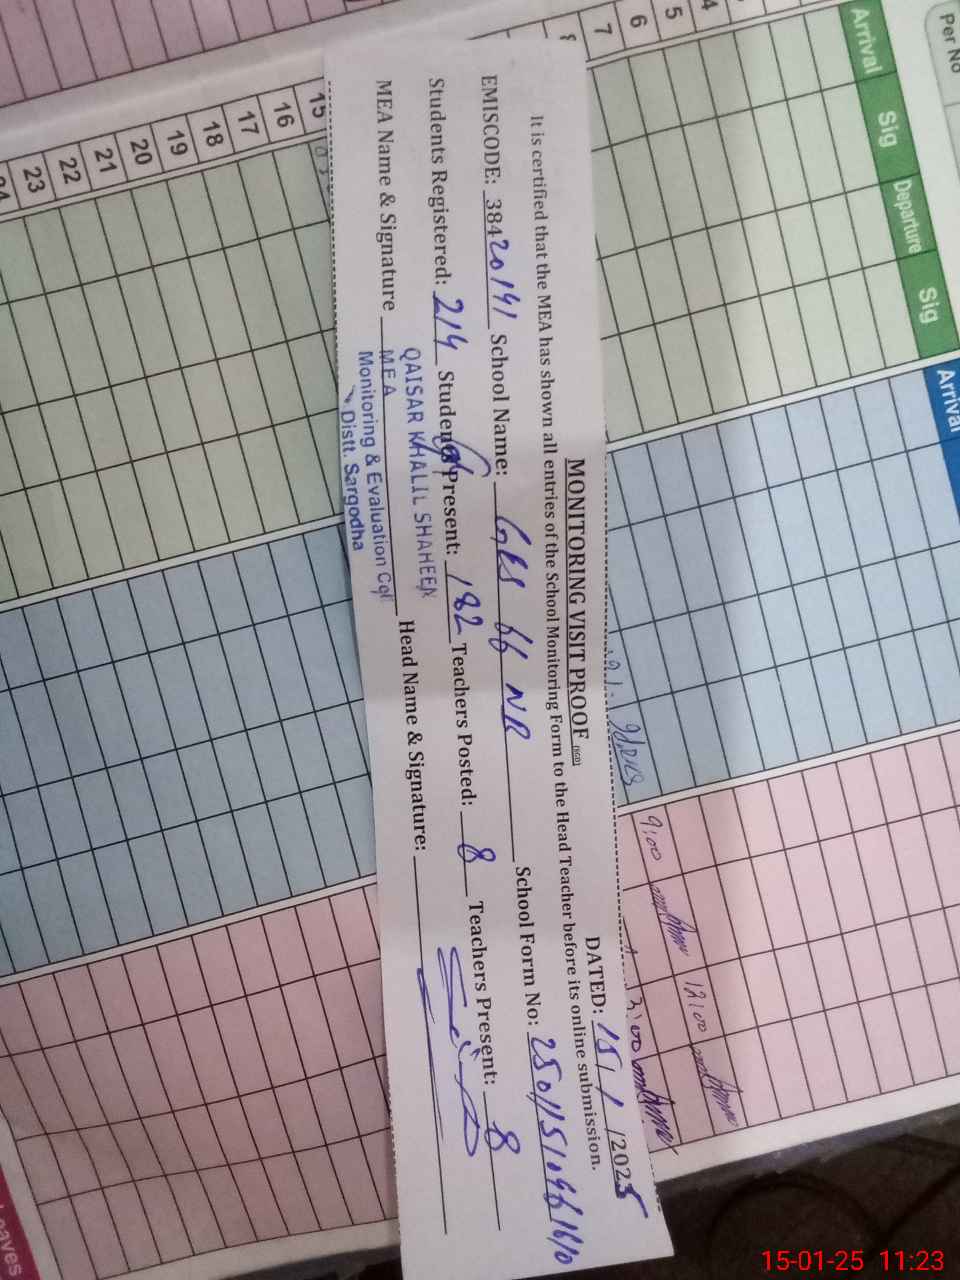 MONITORING VISIT PROOF (SGD)
DATED: 15/1/2025
It is certified that the MEA has shown all entries of the School Monitoring Form to the Head Teacher before its online submission.
EMISCODE: 38420141 School Name: GES 66 NB School Form No:
Students Registered: 214 Students Present: 182 Teachers Posted: 8 Teachers Present: 8
MEA Name & Signature Head Name & Signature:
QAISAR KHALIL SHAHEEN
MEA
Monitoring & Evaluation Cell
Distt. Sargodha
Per No
Arrival Sig Departure Sig Arrival
4
5
6
7
8
9:00 12:00
3:00
15
16
17
18
19
20
21
22
23
24
Leaves
15-01-25 11:23